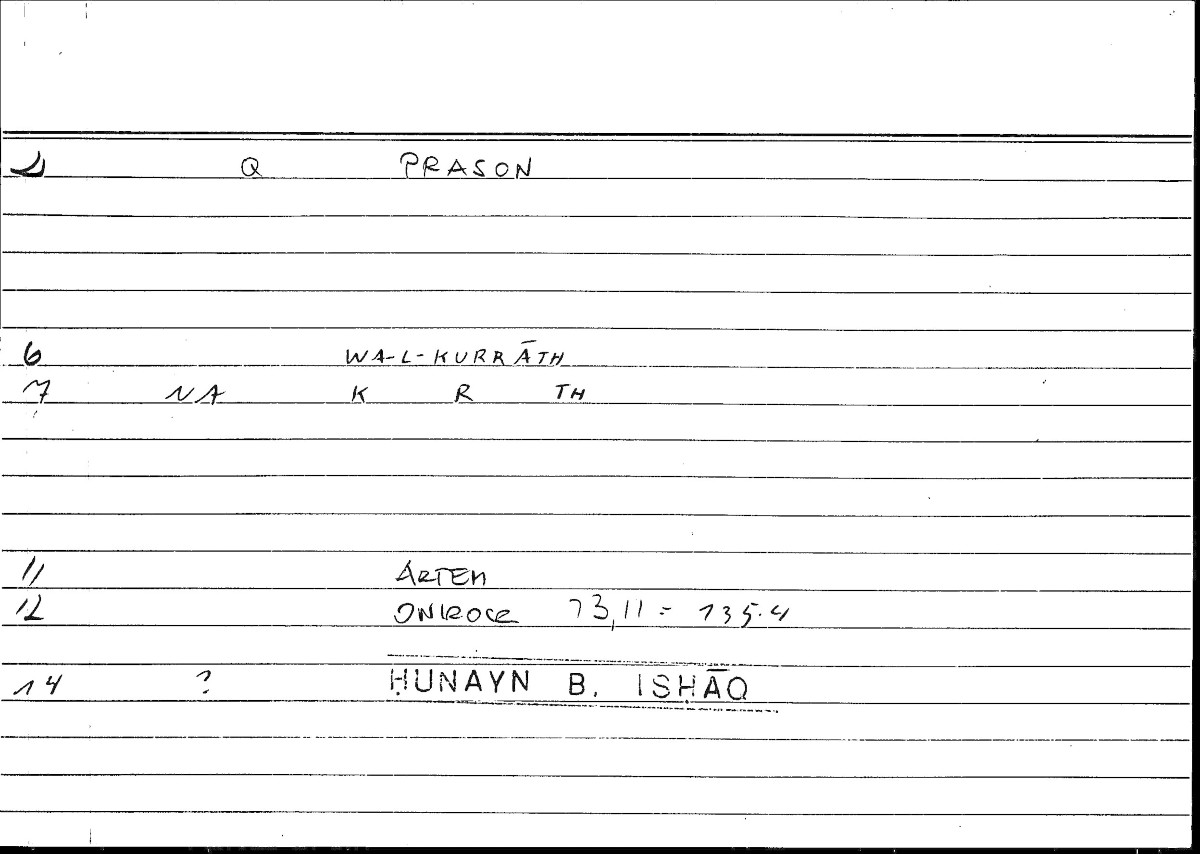 Q PRASON
6 WA-L-KURRĀTH
7 NA K R TH
11 ARTEM
12 ONIROCR 73,11 = 135.4
14 ? ḤUNAYN B. ISḤĀQ